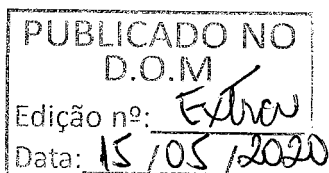 PUBLICADO NO
D.O.M
Edição nº: Extra
Data: 15/05/2020